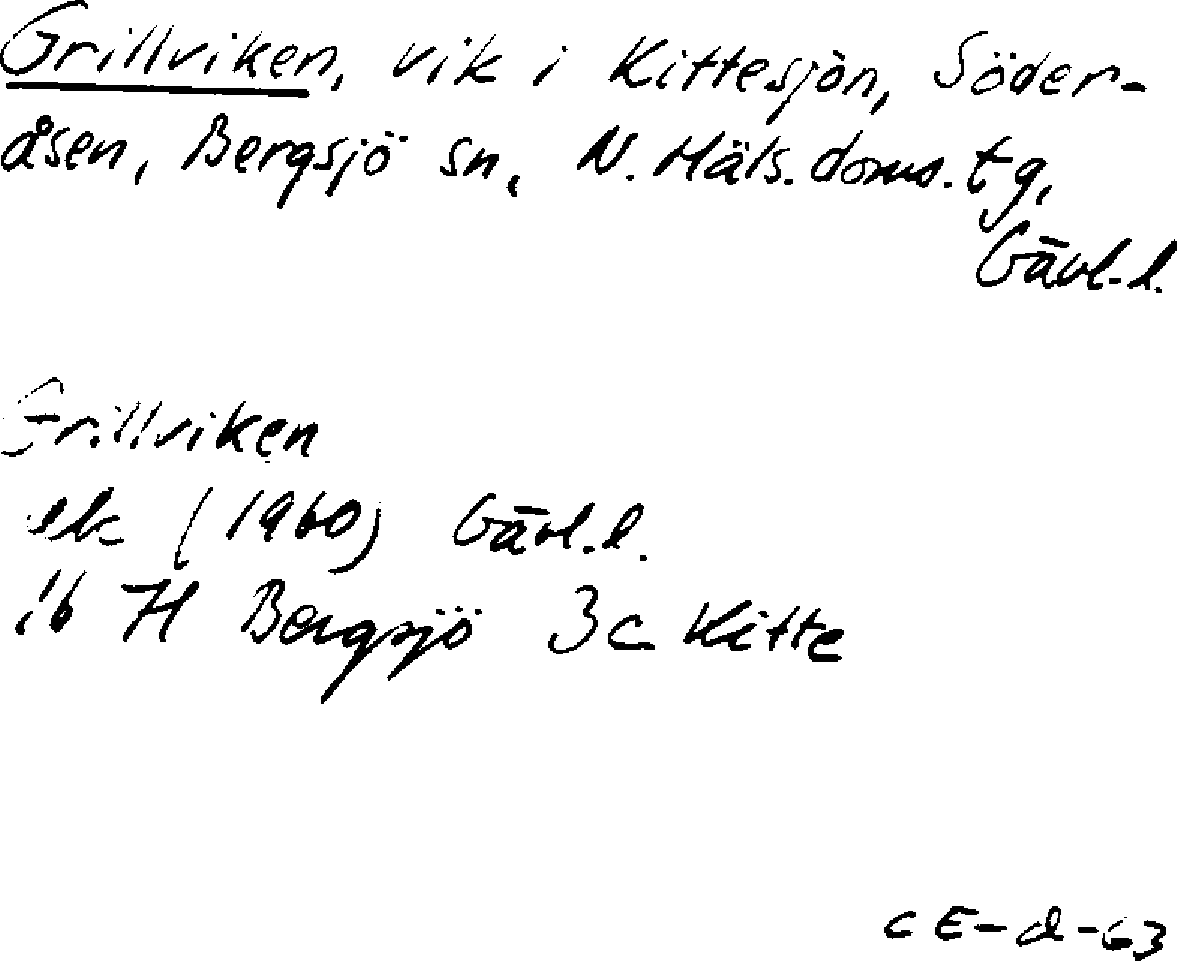 Grillviken, vik i Kittesjön, Söder-
åsen, Bergsjö sn, N. Häls. doms. tg,
Gävl. l.
Grillviken
ek (1960) Gävl. l.
16 H Bergsjö 3c Kitte
CE-d-63